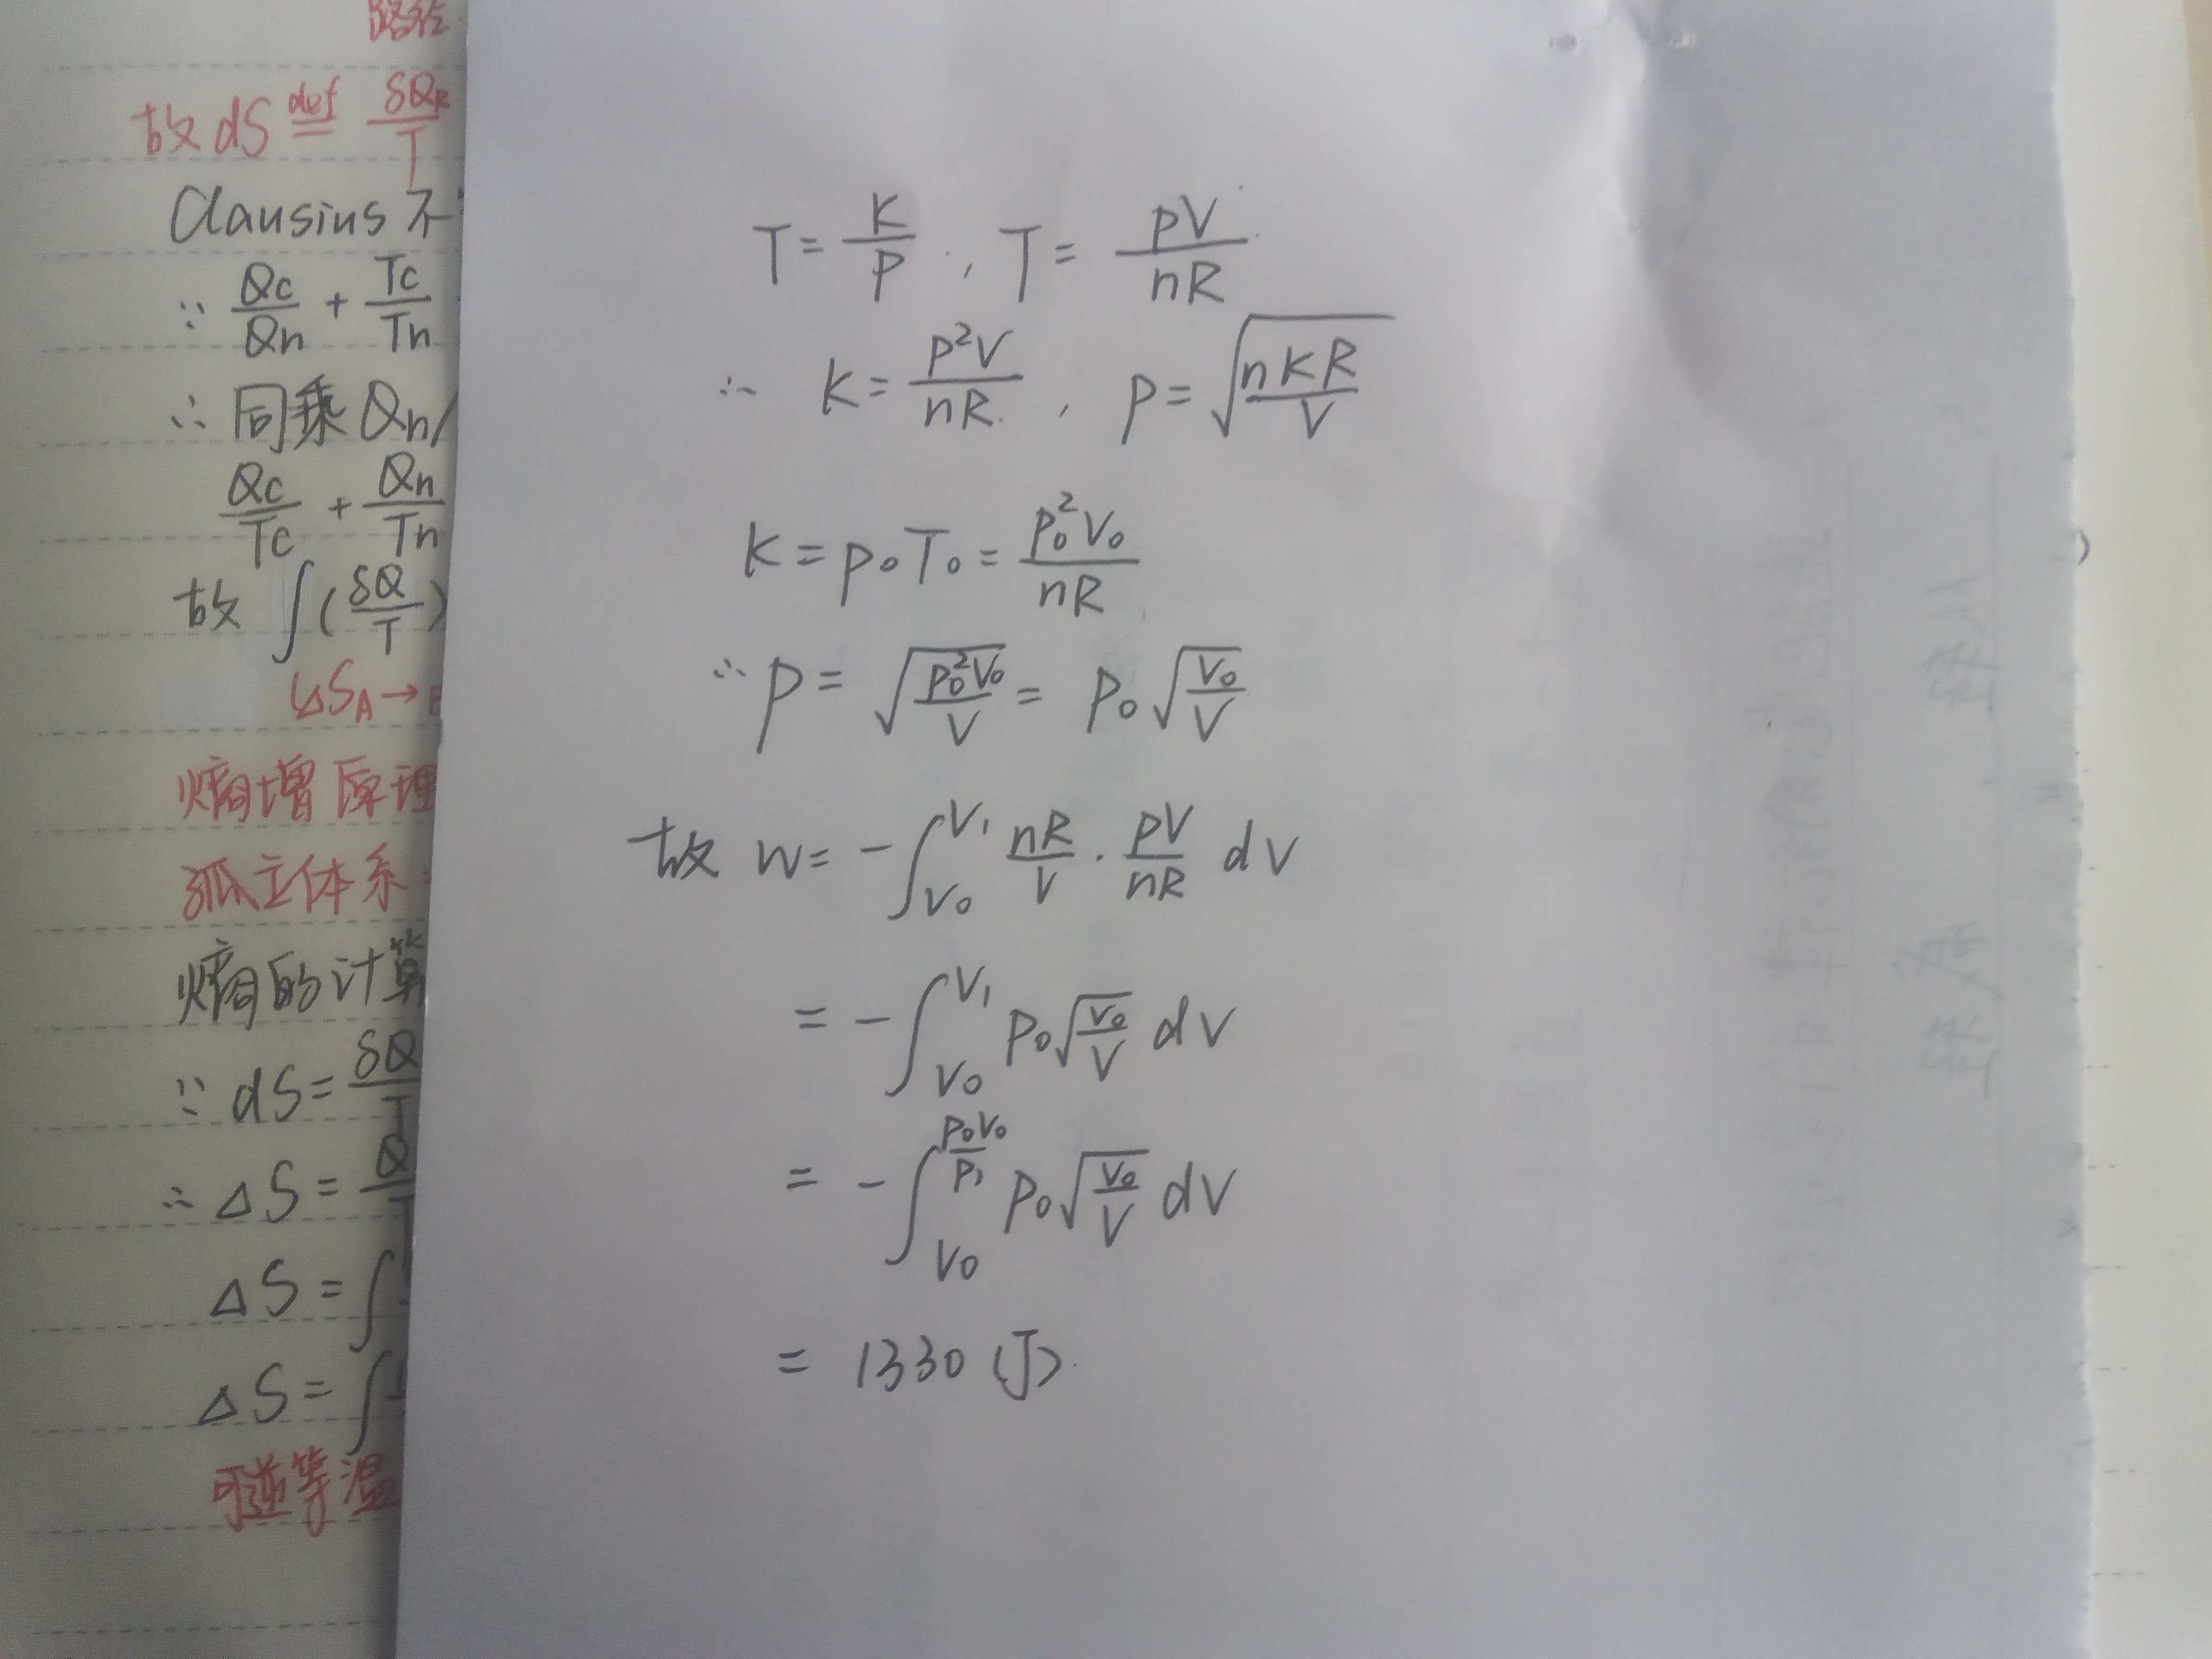 路径
故 dS def= δQR/T
Clausius 不
∵ Qc/Qh + Tc/Th
∴ 同乘 Qh/
Qc/Tc + Qh/Th
故 ∫(δQ/T)
↳ΔS A→B
熵增原理
孤立体系:
熵的计算
∵ dS = δQ/T
∴ ΔS = Q/T
ΔS = ∫
ΔS = ∫
可逆等温
T = K/P , T = pV/nR
∴ K = p²V/nR , p = √(nKR/V)
K = p₀T₀ = p₀²V₀/nR
∴ p = √(p₀²V₀/V) = p₀√(V₀/V)
故 W = -∫_{V₀}^{V₁} nR/V · pV/nR dV
= -∫_{V₀}^{V₁} p₀√(V₀/V) dV
= -∫_{V₀}^{p₀V₀/p₁} p₀√(V₀/V) dV
= 1330 (J).